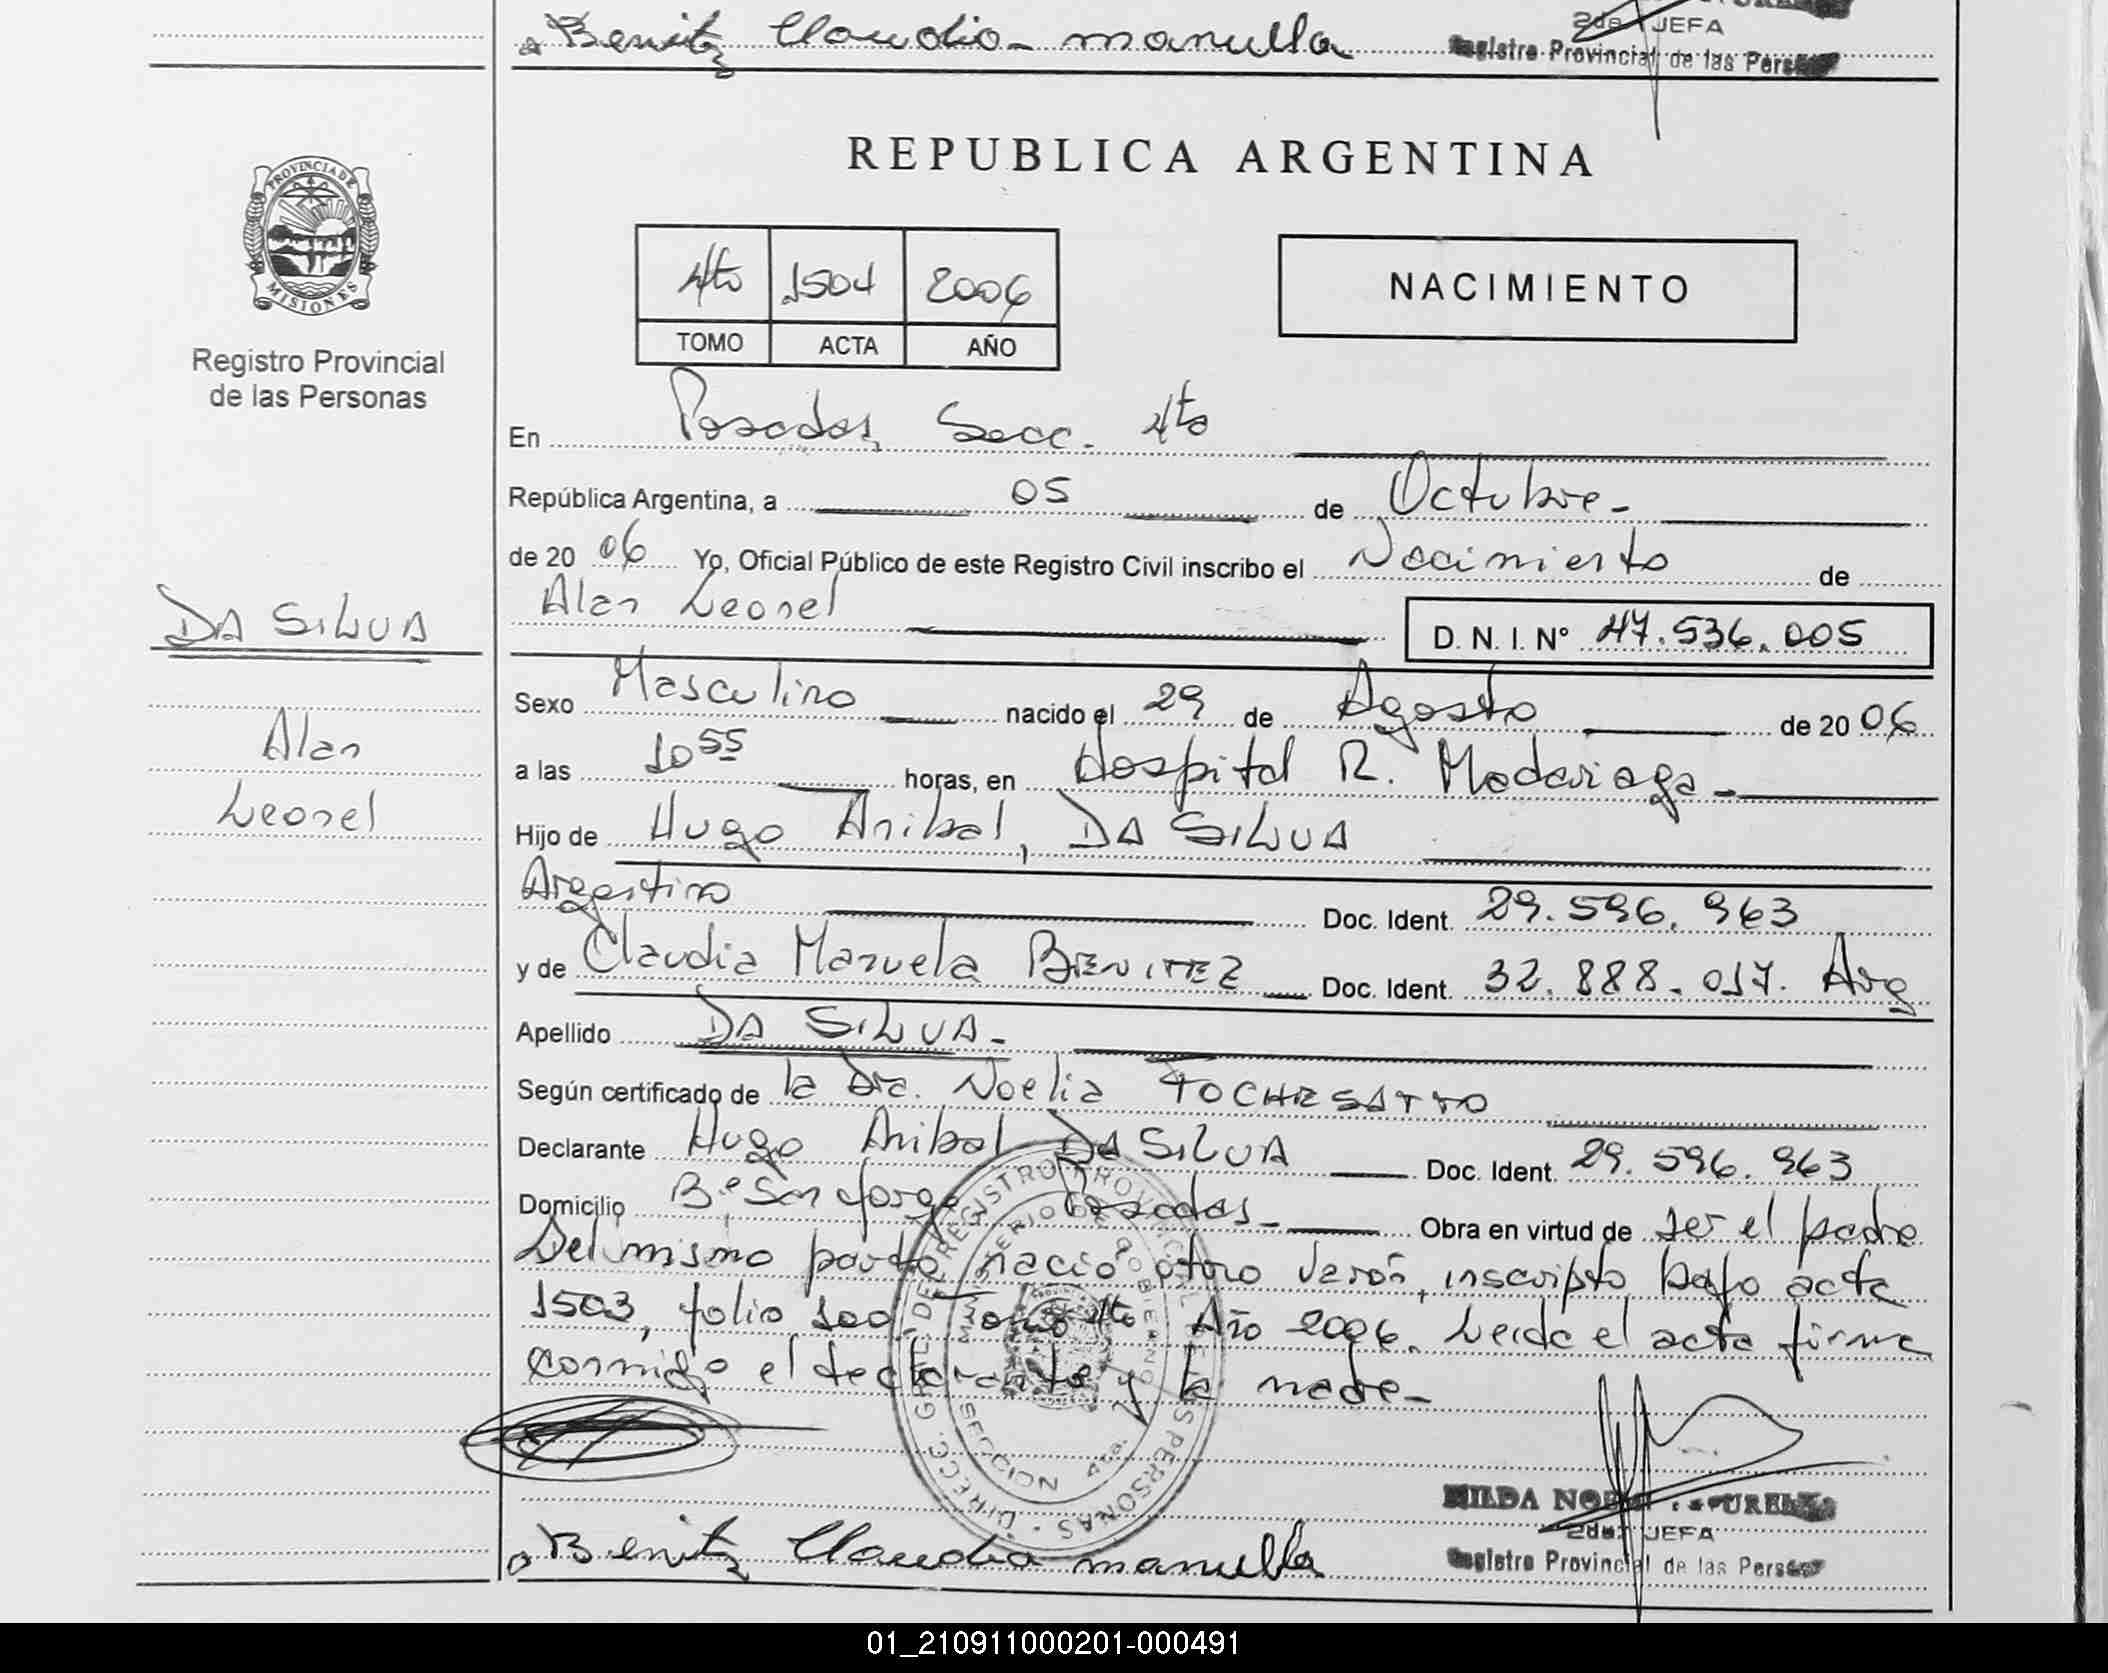 Benitz Claudia manuella
2da JEFA
Registro Provincial de las Personas
REPUBLICA ARGENTINA
PROVINCIA DE
MISIONES
Registro Provincial
de las Personas
4to 1504 2006
TOMO ACTA AÑO
NACIMIENTO
En Posadas, Secc. 4ta
República Argentina, a 05 de Octubre-
de 2006 Yo, Oficial Público de este Registro Civil inscribo el Nacimiento de
Alan Leonel
D. N. I. N° 47.536.005
DA SILVA
Alan
Leonel
Sexo Masculino nacido el 29 de Agosto de 2006
a las 10 55 horas, en Hospital R. Madariaga-
Hijo de Hugo Anibal, DA SILVA
Argentino Doc. Ident. 29.596.963
y de Claudia Manuela BENITEZ Doc. Ident. 32.888.017. Arg
Apellido DA SILVA-
Según certificado de la Dra. Noelia TOCHESATTO
Declarante Hugo Anibal DA SILVA Doc. Ident. 29.596.963
Domicilio B° San Jorge Posadas- Obra en virtud de ser el padre
Del mismo parto nació otro varón, inscripto bajo acta
1503, folio 100, Tomo 4to Año 2006. Leida el acta firma
conmigo el declarante y la madre-
DIRECC. GRAL. DEL REGISTRO PROVINCIAL DE LAS PERSONAS
MINISTERIO DE GOBIERNO
SECCION 4ta.
HILDA
2da JEFA
Registro Provincial de las Personas
Benitz Claudia manuella
01_210911000201-000491